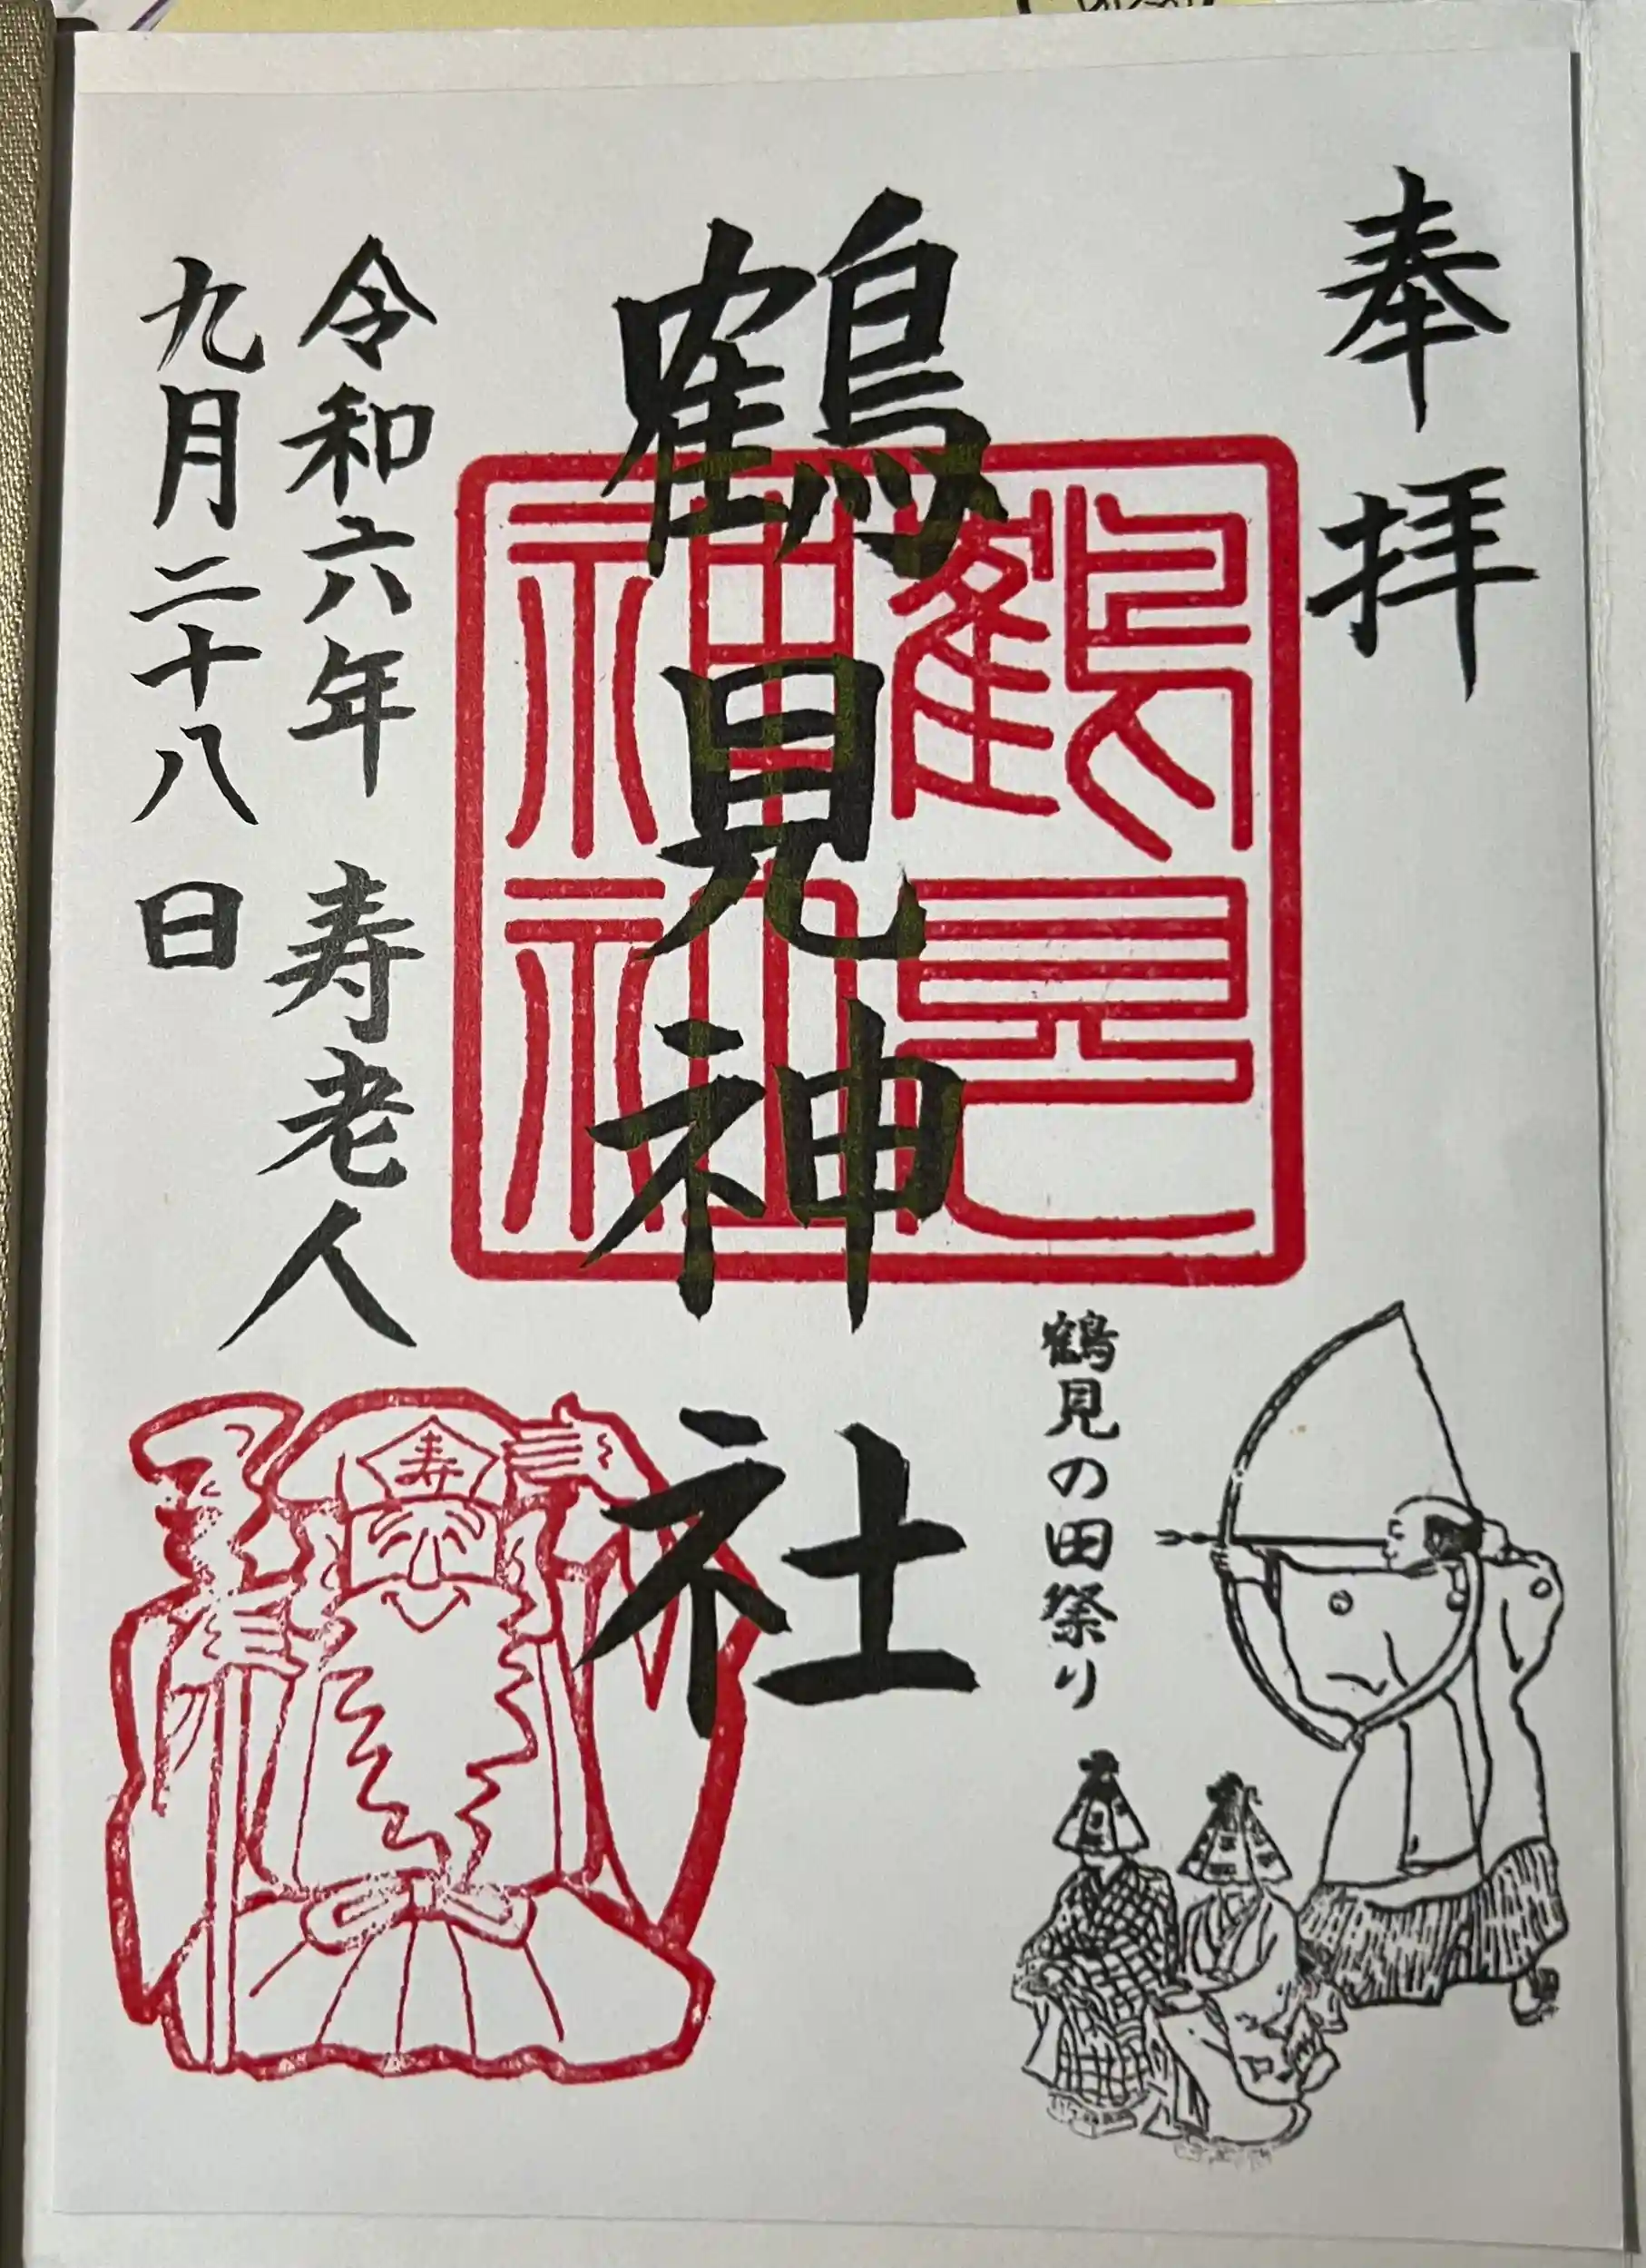 奉拝
鶴見神社
鶴見神社
鶴見の田祭り
令和六年 寿老人
九月二十八日
寿